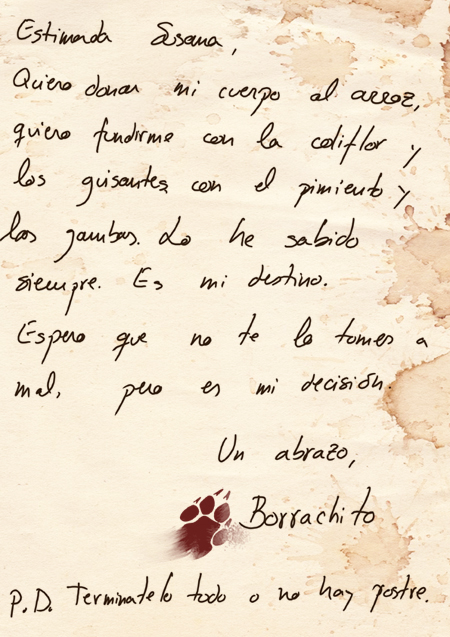 Estimada Susana,
Quiero donar mi cuerpo al arroz,
quiero fundirme con la coliflor y
los guisantes con el pimiento y
las gambas. Lo he sabido
siempre. Es mi destino.
Espero que no te lo tomes a
mal, pero es mi decisión.
Un abrazo,
Borrachito
P.D. Terminatelo todo o no hay postre.